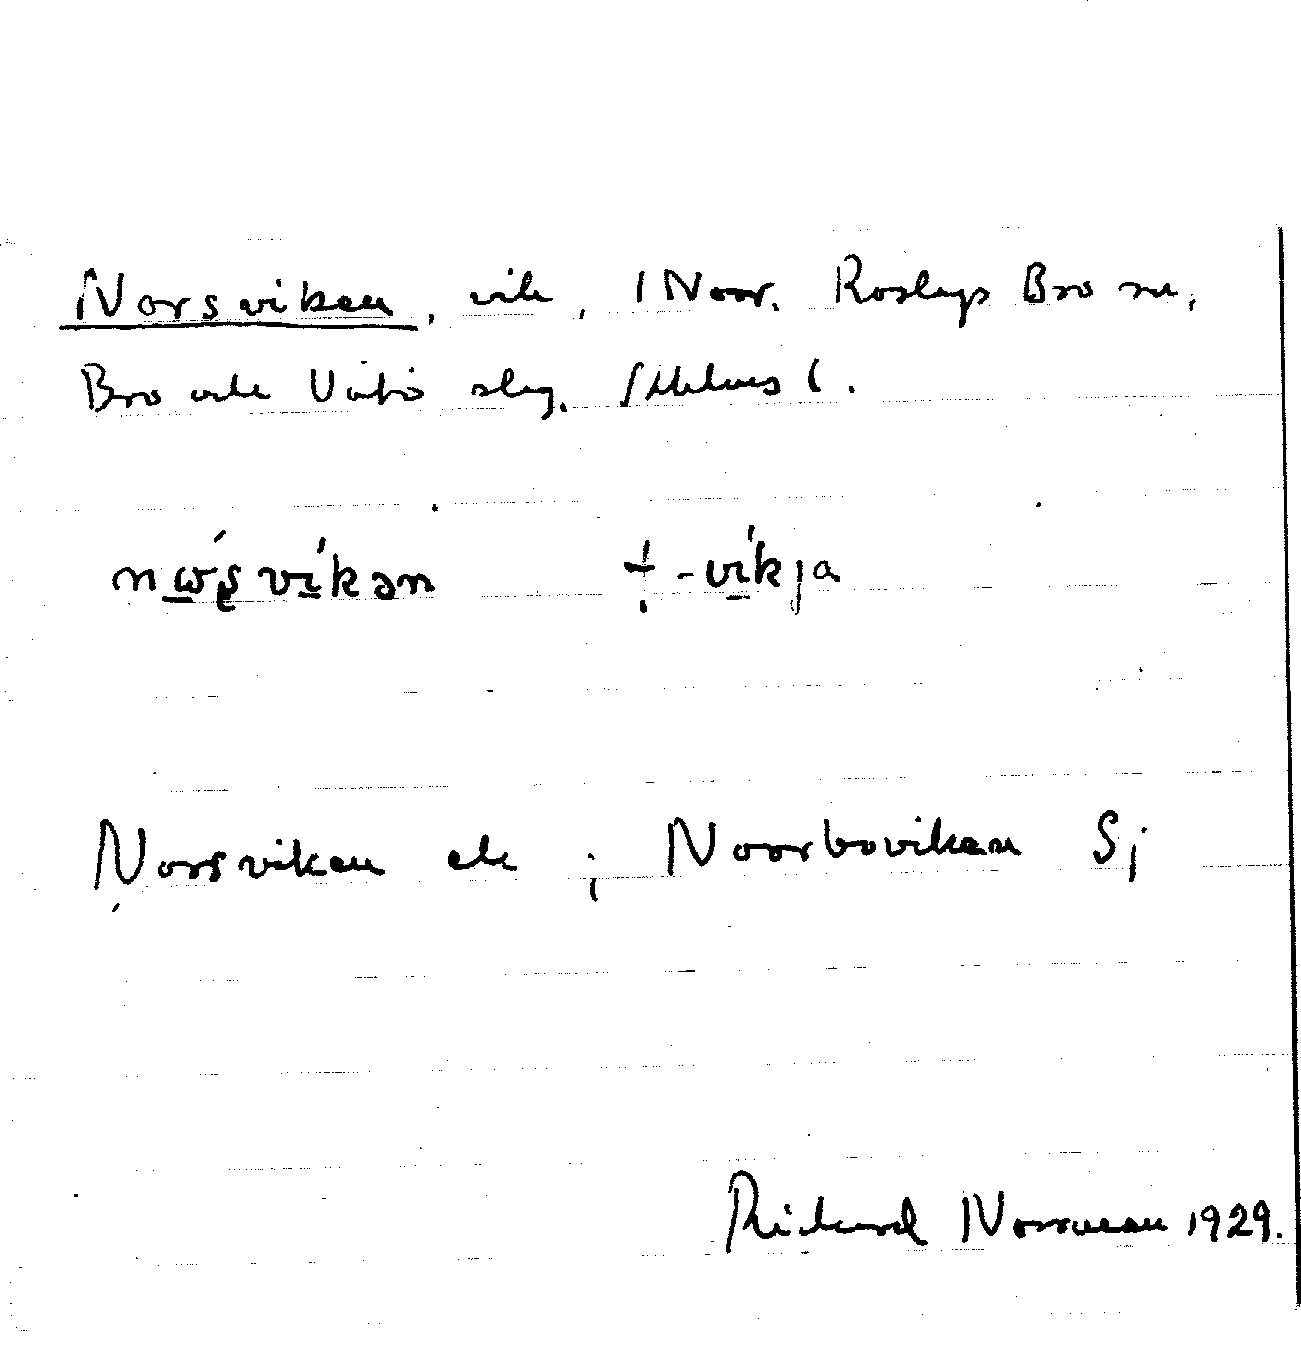 Norsviken, vik, Noor. Roslags Bro sn,
Bro och Vätö slg. Sthlms l.
nώʂvíkən †-víkja
Norsviken ek ; Noorboviken Sj
Rickard Norrman 1929.